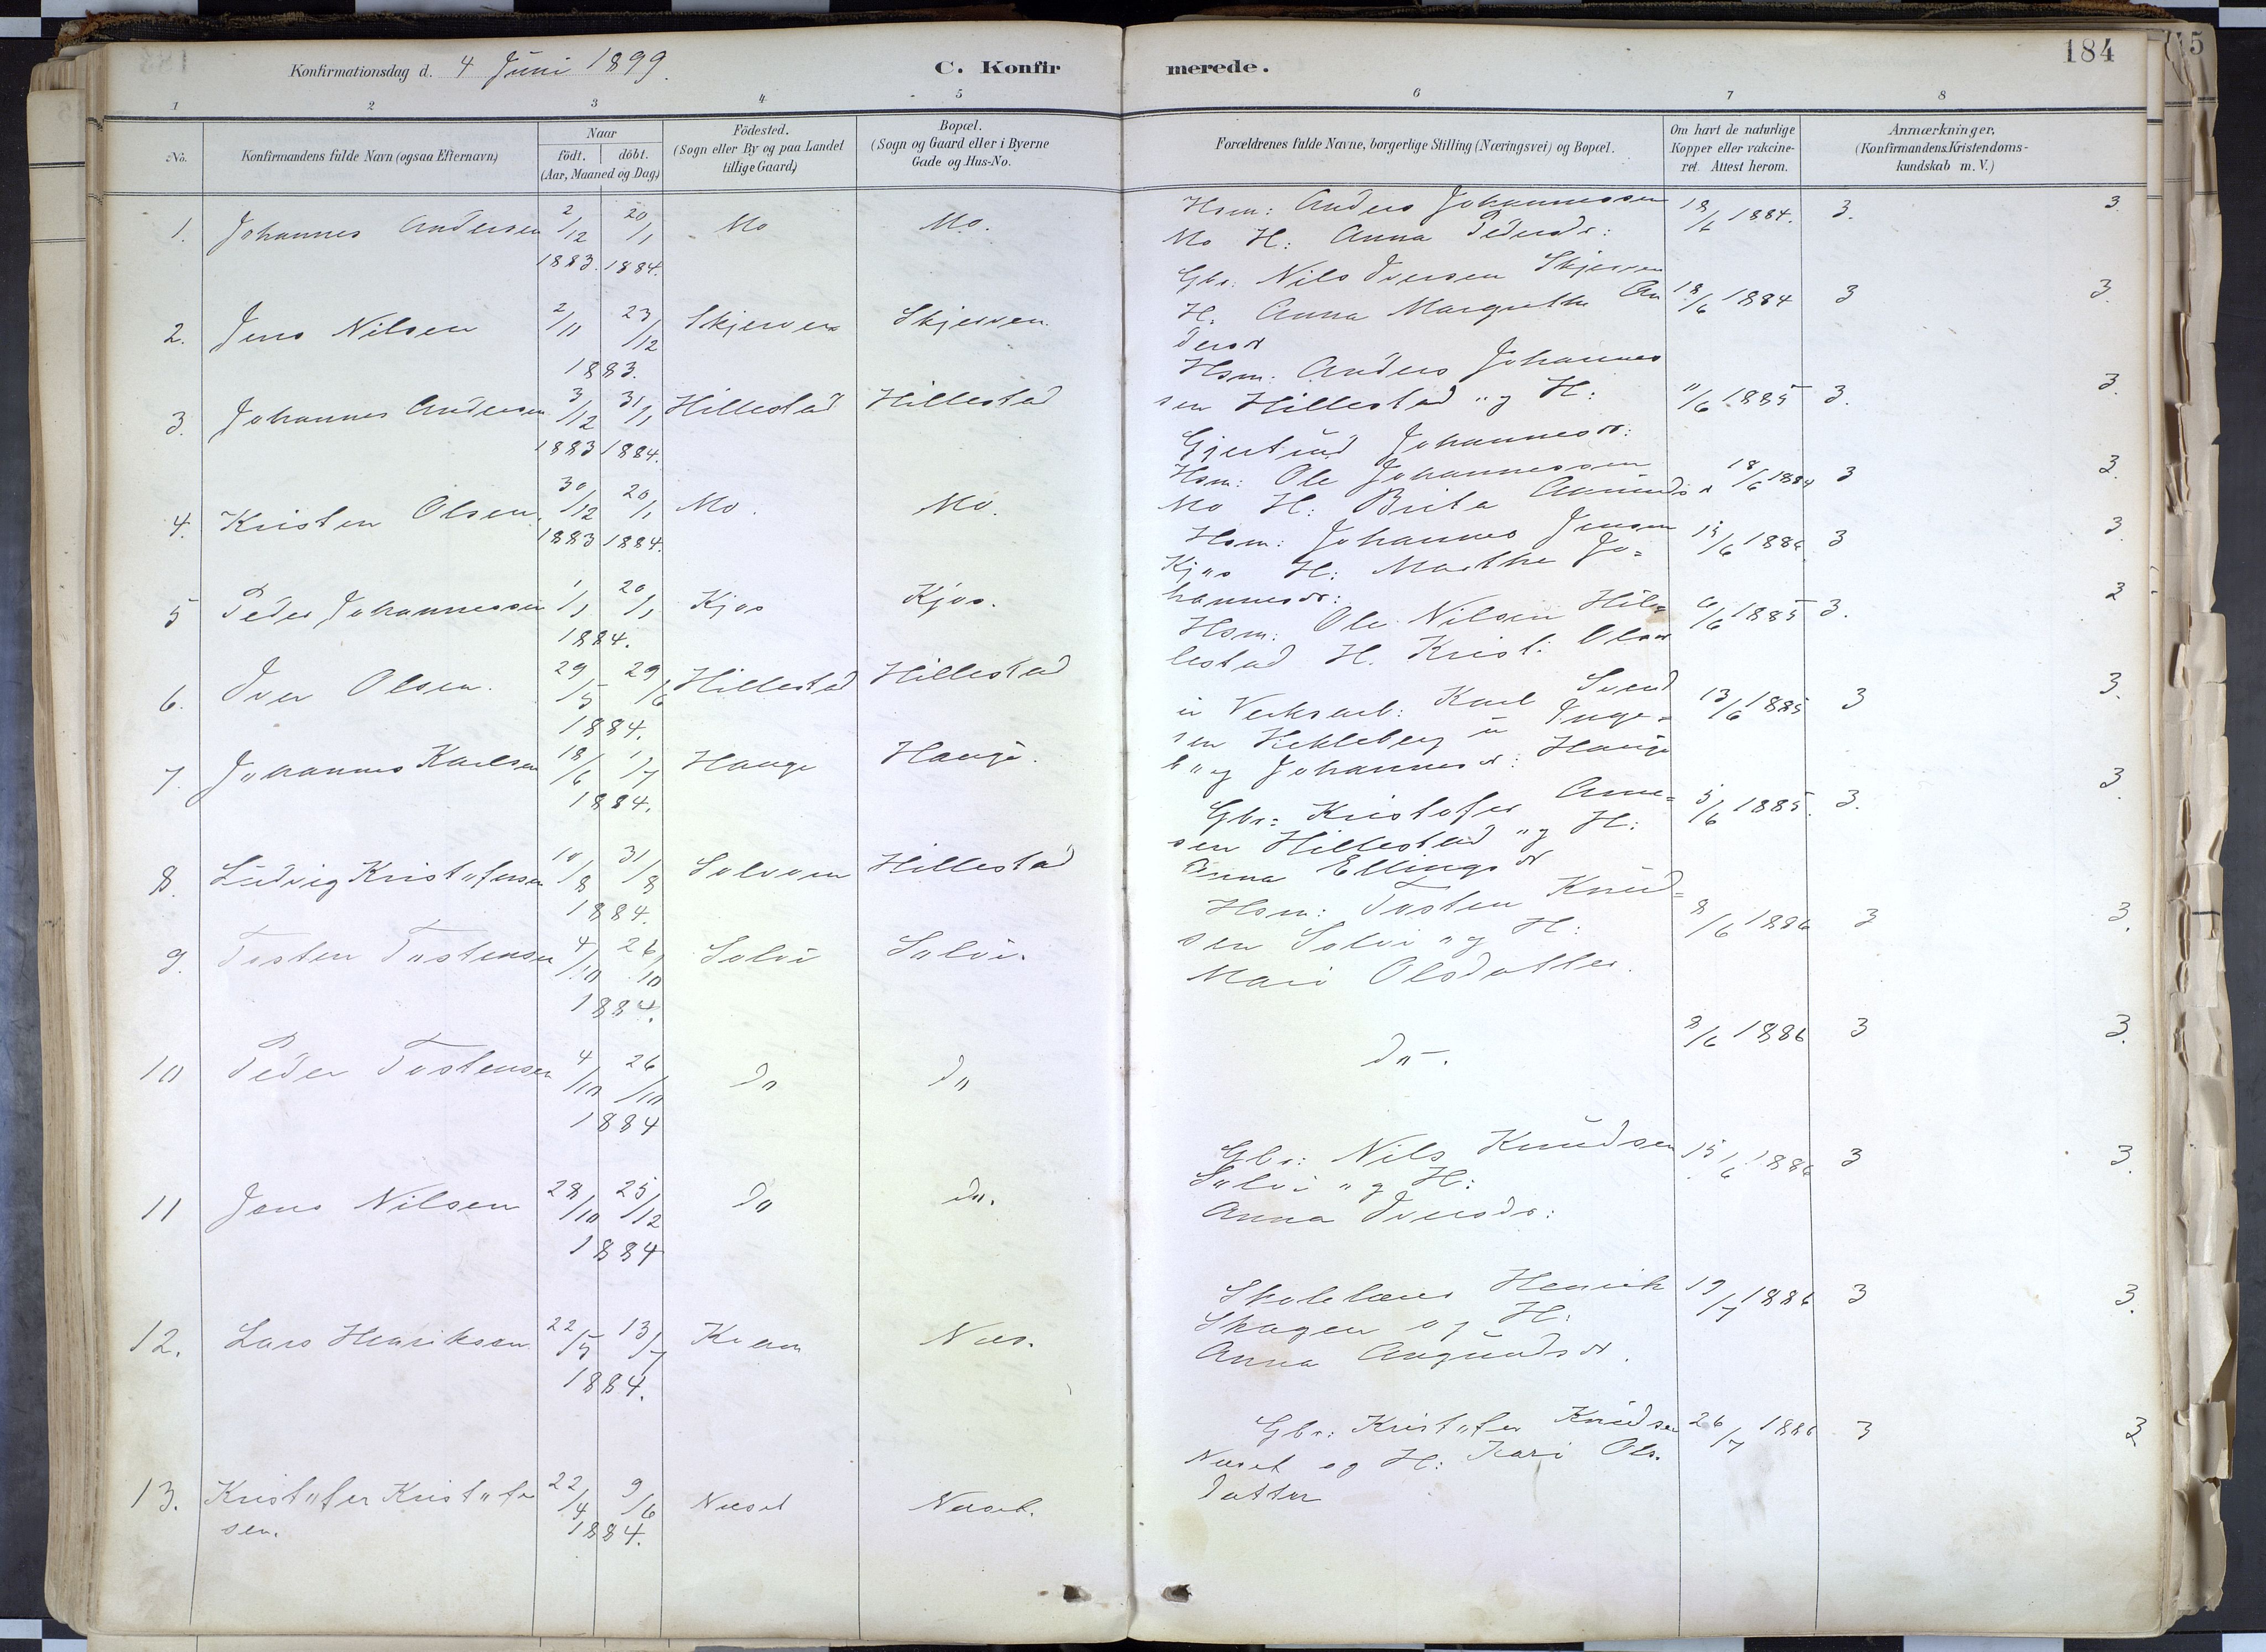 Konfirmationsdag d. 4 Juni 1899.
C. Konfirmerede.
184
1 2 3 4 5 6 7 8
No.
Konfirmandens fulde Navn (ogsaa Efternavn)
Naar
födt. döbt.
(Aar, Maaned og Dag.)
Födested.
(Sogn eller By og paa Landet
tillige Gaard)
Bopæl.
(Sogn og Gaard eller i Byerne
Gade og Hus-No.
Forældrenes fulde Navne, borgerlige Stilling (Næringsvei) og Bopæl.
Om havt de naturlige
Kopper eller vakcine-
ret. Attest herom.
Anmærkninger,
(Konfirmandens Kristendoms-
kundskab m. V.)
1. Johannes Andersen 2/12 1883. 20/1 1884. Mo Mo.
Hsm: Anders Johannessen
Mo H: Anna Pedersdr:
18/6 1884. 3. 3.
2. Jens Nilsen 2/11 23/12 1883. Skjerven Skjerven.
Gbr: Nils Iversen Skjerven
H. Anna Margrethe An
dersdr
18/6 1884 3 3.
3. Johannes Andersen 3/12 1883 31/1 1884. Hillestad Hillestad
Hsm: Anders Johannes
sen Hillestad og H:
Gjertrud Johannesdr:
11/6 1885 3. 3.
4. Kristen Olsen 30/12 1883 20/1 1884. Mo. Mo.
Hsm: Ole Johannessen
Mo H: Brita Amundsdr
18/6 1884 3 3.
5 Peder Johannessen 1/1 20/1 1884. Kjos Kjos.
Hsm: Johannes Jensen
Kjos H: Marthe Jo-
hannesdr:
15/6 1886 3 3.
6. Iver Olsen. 29/5 29/6 1884. Hillestad Hillestad
Hsm: Ole Nilsen Hil-
lestad H. Krist. Olsdr
6/6 1885 3. 3
7. Johannes Karlsen 18/6 1/7 1884. Hauge Hauge.
u Verksarb: Karl Svend
sen Kekleberg u Inge-
b og Johannesdr: Hauge
13/6 1885 3 3.
8. Ludvig Kristofersen 10/8 31/8 1884. Solvom Hillestad
Gbr: Kristofer Arne-
sen Hillestad og H:
Anna Ellingsdr
5/6 1885. 3. 3.
9. Tosten Tostensen 4/10 26/10 1884. Solvi Solvi.
Hsm: Tosten Knud-
sen Solvi og H:
Mari Olsdatter.
8/6 1886 3 3.
10 Peder Tostensen 4/10 26/10 1884 do do
do-.
8/6 1886 3 3.
11 Jens Nilsen 28/10 25/12 1884 do do.
Gbr: Nils Knudsen
Solvi og H:
Anna Iversdr:
15/6 1886 3 3.
12. Lars Henriksen 22/5 13/7 1884. Kvam Nus.
Skolelærer Henrik
Skagen og H.
Anna Augundsdr.
19/7 1886 3 3.
13. Kristofer Kristofer
sen. 22/4 9/6 1884. Nuset Nuset.
Gbr: Kristofer Knudsen
Nuset og H: Kari Ols.
datter
26/7 1886 3 3